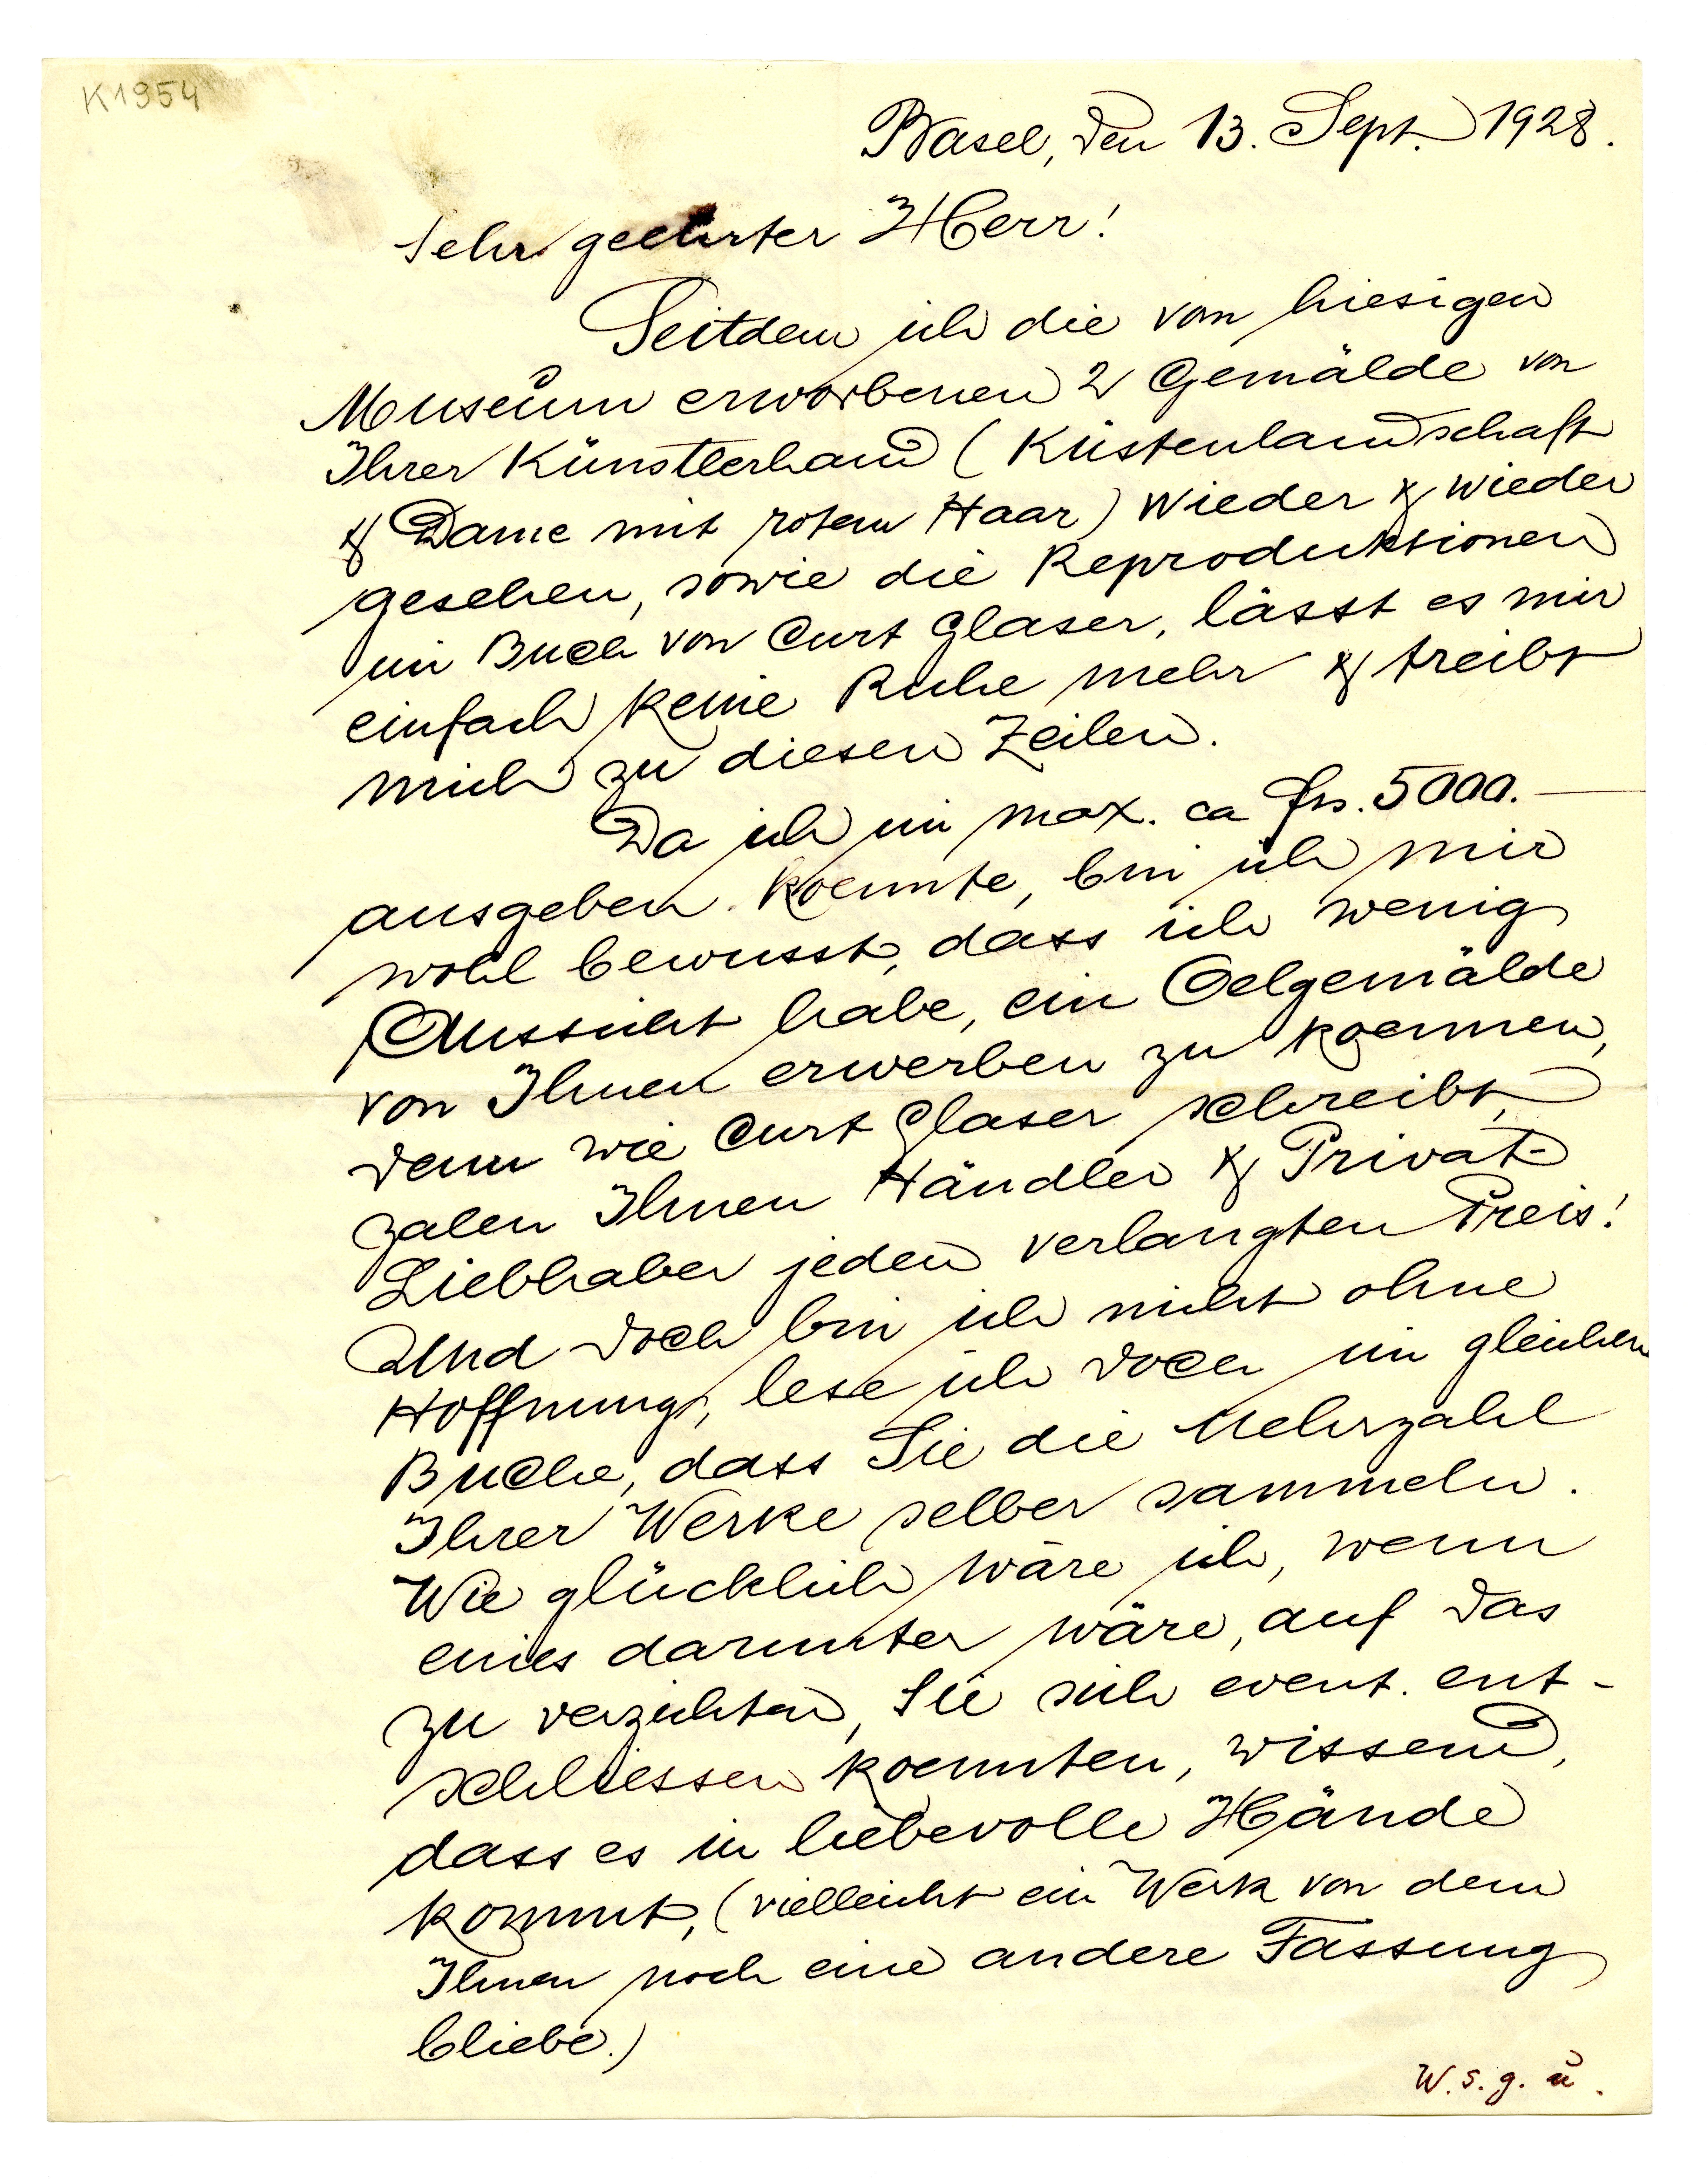 K1954
Basel, den 13. Sept. 1928.
Sehr geehrter Herr!
Seitdem ich die vom hiesigen
Museum erworbenen 2 Gemälde von
Ihrer Künstlerhand (Küstenlandschaft
& Dame mit rotem Haar) wieder & wieder
gesehen, sowie die Reproduktionen
im Buch von Curt Glaser, lässt es mir
einfach keine Ruhe mehr & treibt
mich zu diesen Zeilen.
Da ich im max. ca frs. 5000.—
ausgeben koennte, bin ich mir
wohl bewusst, dass ich wenig
Aussicht habe, ein Oelgemälde
von Ihnen erwerben zu koennen,
denn wie Curt Glaser schreibt,
zalen Ihnen Händler & Privat-
Liebhaber jeden verlangten Preis!
Und doch bin ich nicht ohne
Hoffnung, lese ich doch im gleichen
Buche, dass Sie die Mehrzahl
Ihrer Werke selber sammeln.
Wie glücklich wäre ich, wenn
eines darunter wäre, auf das
zu verzichten, Sie sich event. ent-
schliessen koennten, wissend,
dass es in liebevolle Hände
kommt, (vielleicht ein Werk von dem
Ihnen noch eine andere Fassung
bliebe.)
W. s. g. u.